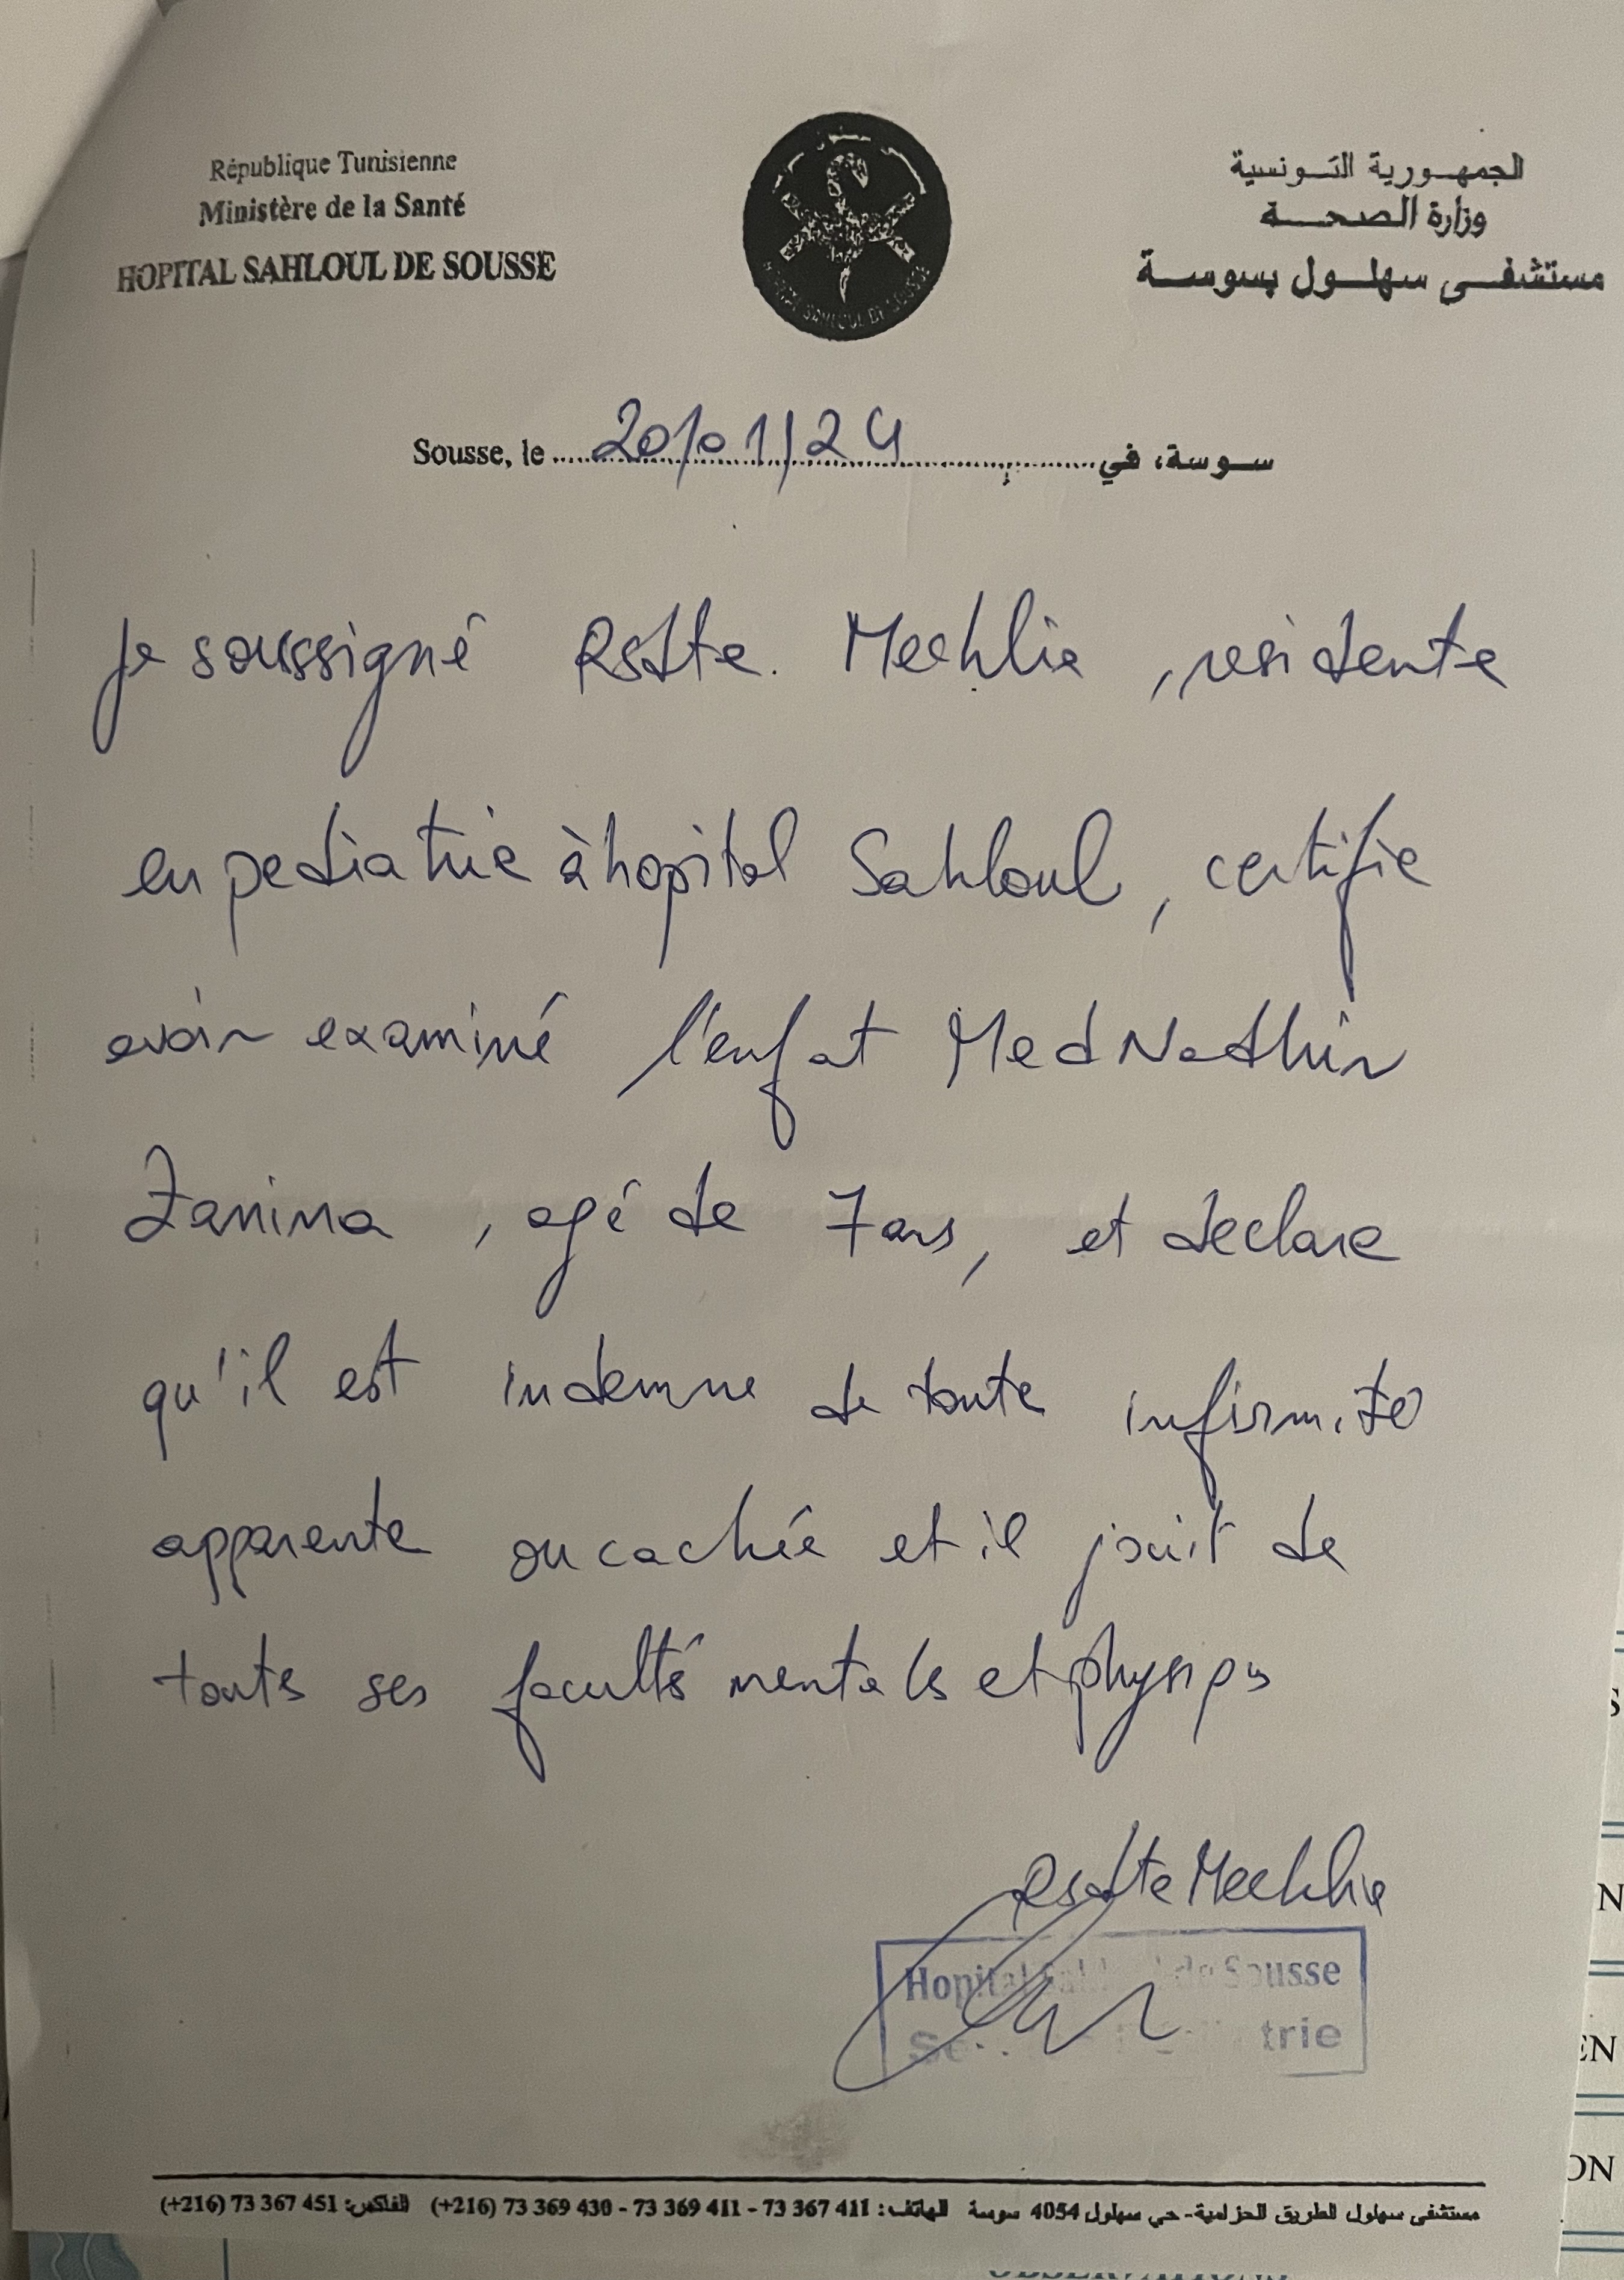 République Tunisienne
Ministère de la Santé
HOPITAL SAHLOUL DE SOUSSE
الجمهورية التونسية
وزارة الصحة
مستشفى سهلول بسوسة
HOPITAL SAHLOUL DE SOUSSE
Sousse, le 20/01/24 سوسة، في
Je soussigné Rsdte. Mechlia, residente
en pediatrie à hopital Sahloul, certifie
avoir examiné l'enfat Med Nadhir
Zanina, agé de 7 ans, et declare
qu'il est indemne de toute infirmité
apparente ou cachée et il jouit de
touts ses facultés mentales et physiqs
Rsdte Mechlia
Hopital Sahloul de Sousse
مستشفى سهلول الطريق الحزامية- حي سهلول 4054 سوسة الهاتف: 73 367 411 - 73 369 411 - 73 369 430 (+216) الفاكس: 73 367 451 (+216)